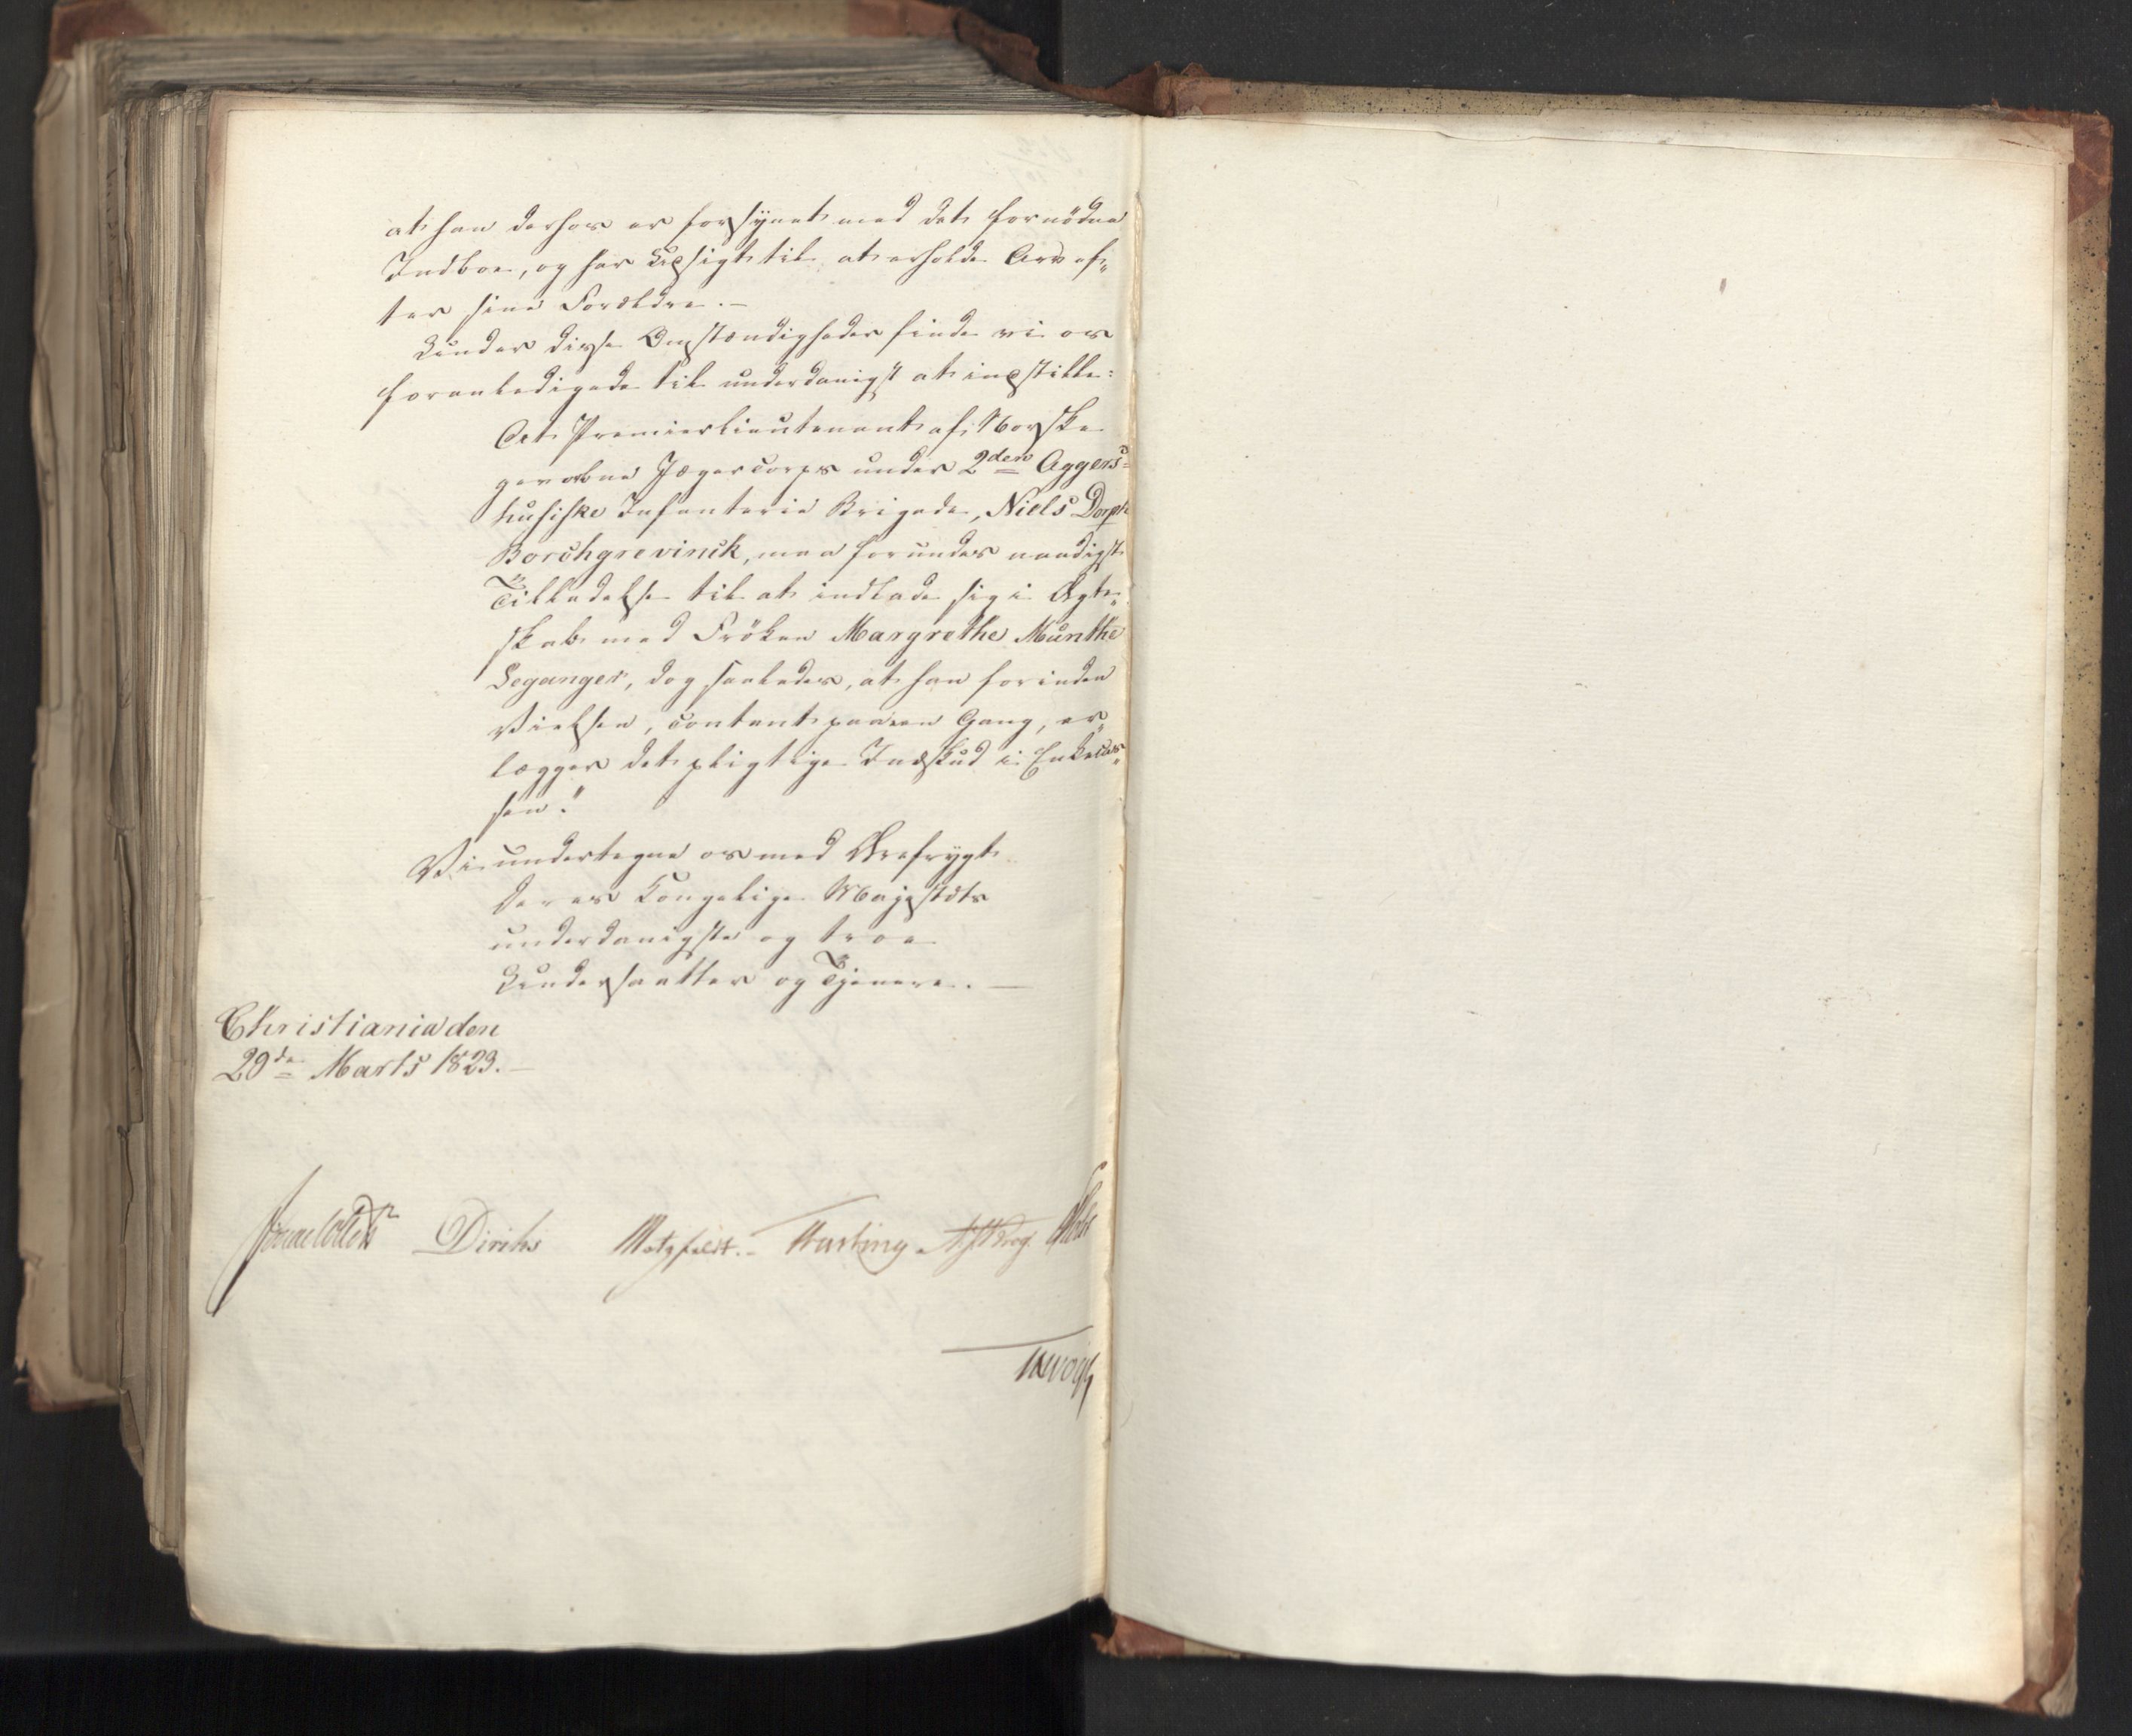 at han derhos er forsynet med det fornödne
Indboe, og har Udsigt til at erholde Arv ef„
ter sine Forældre. –
Under disse Omstændigheder finde vi os
foranledigede til underdanigst at indstille:
At Premierlieutenant af Norske
gevorbne Jægercorps under 2den Aggers-
husiske Infanterie Brigade, Niels Dorph
Borchgrevinck, maa forundes naadigst
Tilladelse til at indlade sig i Ægte„
skab med Fröken Margrethe Munthe
Leganger, dog saaledes, at han forinden
Vielsen, contant paa een Gang, er„
lægger det pligtige Indskud i Enkecas„
sen."
Vi undertegne os med Ærefrygt
Deres Kongelige Majestæts
underdanigste og troe
Undersaatter og Tjenere. –
Christiania den
29de Marts 1823. –
Jonas Collett Diriks Motzfeldt. – Hartung